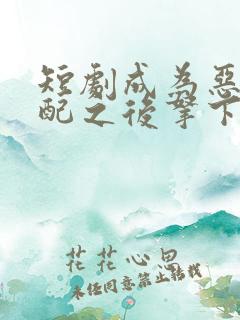 短劇成為惡
配之後拏下
花花心思
未經同意禁止轉載